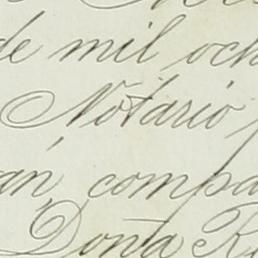 de mil och
Notario
an, compa
Doña R